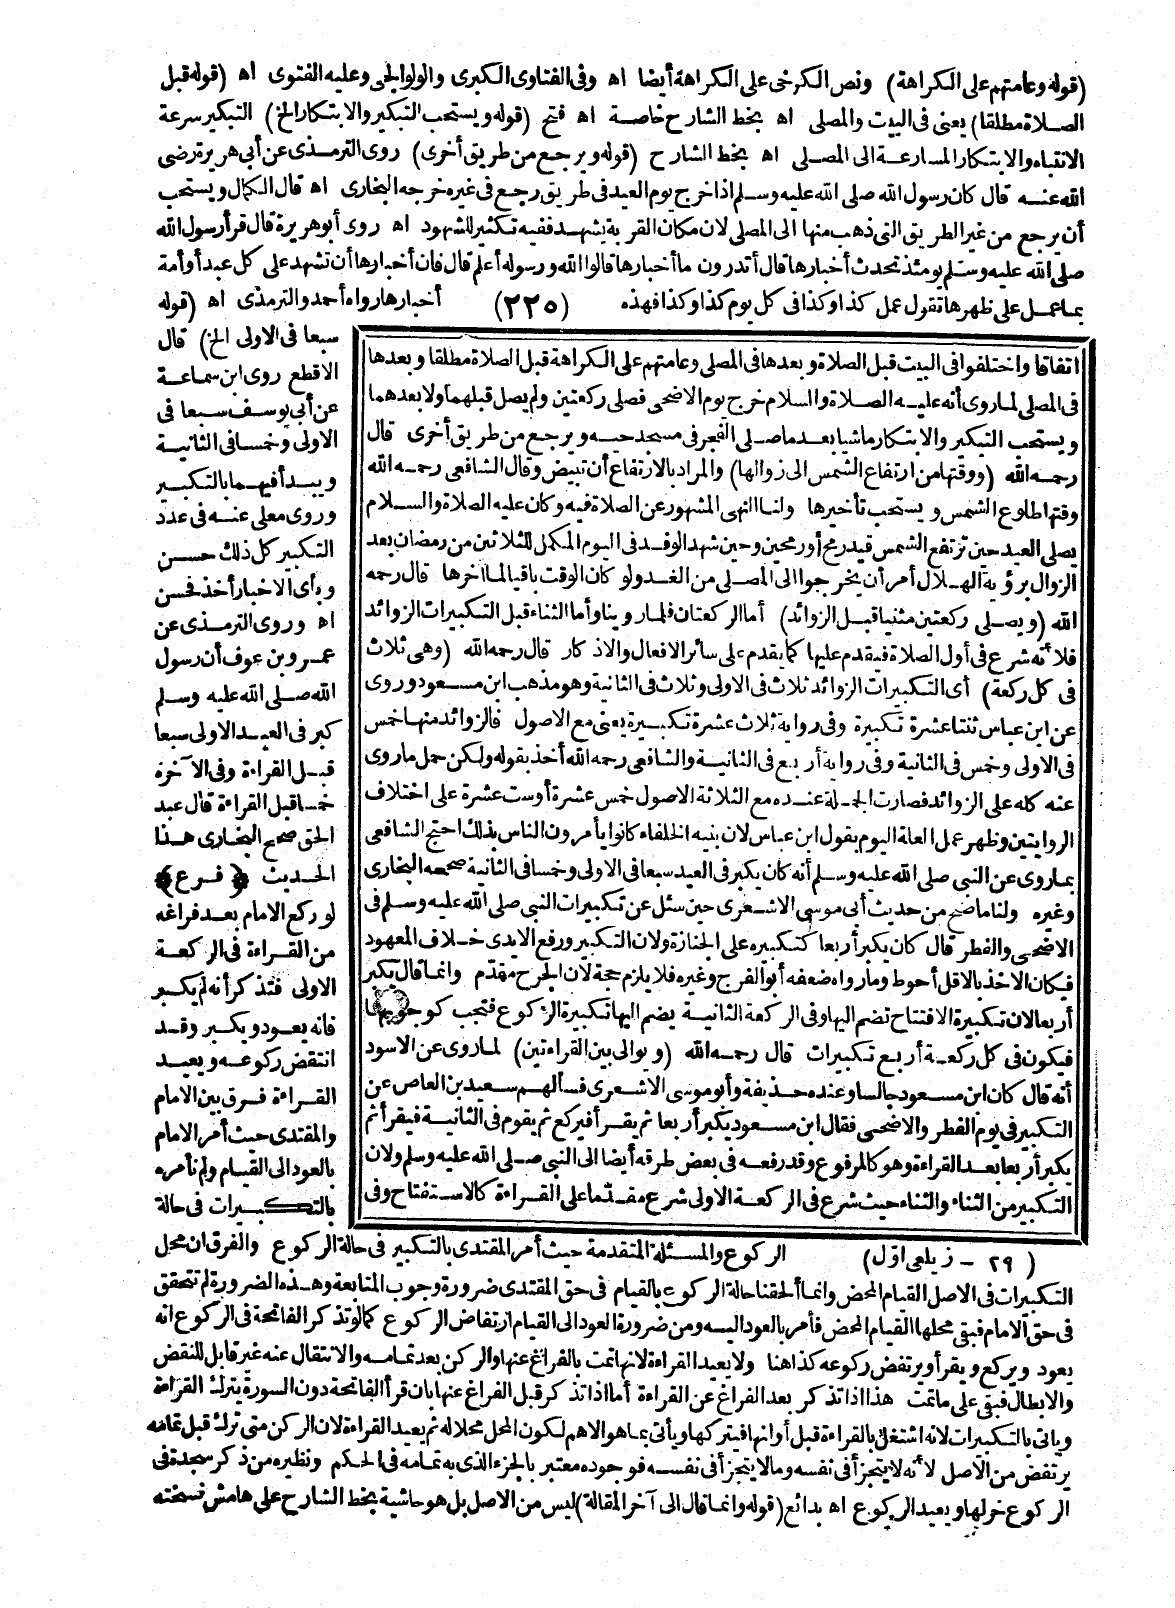 (قوله وعامتهم على الكراهة) ونص الكرخى على الكراهة أيضا اه وفى الفتاوى الكبرى والولوالجى وعليه الفتوى اه (قوله قبل
الصلاة مطلقا) يعنى فى البيت والمصلى اه بخط الشارح خاصة اه فتح (قوله ويستحب التبكير والابتكار الخ) التبكير سرعة
الانتباه والابتكار المسارعة الى المصلى اه بخط الشارح (قوله ويرجع من طريق أخرى) روى الترمذى عن أبى هريرة رضى
الله عنه قال كان رسول الله صلى الله عليه وسلم اذا خرج يوم العيد فى طريق رجع فى غيره خرجه البخارى اه قال الكمال ويستحب
أن يرجع من غير الطريق التى ذهب منها الى المصلى لان مكان القربة يشهد ففيه تكثير للشهود اه روى أبو هريرة قال قرأ رسول الله
صلى الله عليه وسلم يومئذ تحدث أخبارها قال أتدرون ما أخبارها قالوا الله ورسوله أعلم قال فان أخبارها أن تشهد على كل عبد أو أمة
بما عمل على ظهرها تقول عمل كذا وكذا فى كل يوم كذا وكذا فهذه (٢٢٥) أخبارها رواه أحمد والترمذى اه (قوله
سبعا فى الاولى الخ) قال
الاقطع روى ابن سماعة
عن أبى يوسف سبعا فى
الاولى وخمسا فى الثانية
ويبدأ فيهما بالتكبير
وروى معلى عنه فى عدد
التكبير كل ذلك حسن
وبأى الاخبار أخذ فحسن
اه وروى الترمذى عن
عمرو بن عوف أن رسول
الله صلى الله عليه وسلم
كبر فى العيد الاولى سبعا
قبل القراءة وفى الآخرة
خمسا قبل القراءة قال عبد
الحق صحح البخارى هذا
الحديث ﴿فرع﴾
لو ركع الامام بعد فراغه
من القراءة فى الركعة
الاولى فتذكر أنه لم يكبر
فانه يعود ويكبر وقد
انتقض ركوعه ويعيد
القراءة فرق بين الامام
والمقتدى حيث أمر الامام
بالعود الى القيام ولم نأمره
بالتكبيرات فى حالة
اتفاقا واختلفوا فى البيت قبل الصلاة وبعدها فى المصلى وعامتهم على الكراهة قبل الصلاة مطلقا وبعدها
فى المصلى لما روى أنه عليه الصلاة والسلام خرج يوم الاضحى فصلى ركعتين ولم يصل قبلهما ولا بعدهما
ويستحب التبكير والابتكار ماشيا بعد ما صلى الفجر فى مسجد حيه ويرجع من طريق أخرى قال
رحمه الله (ووقتها من ارتفاع الشمس الى زوالها) والمراد بالارتفاع أن تبيض وقال الشافعى رحمه الله
وقتها طلوع الشمس ويستحب تأخيرها ولنا النهى المشهور عن الصلاة فيه وكان عليه الصلاة والسلام
يصلى العيد حين ترتفع الشمس قيد رمح أو رمحين وحين شهد الوفد فى اليوم المكمل للثلاثين من رمضان بعد
الزوال برؤية الهلال أمر أن يخرجوا الى المصلى من الغد ولو كان الوقت باقيا لما اخرها قال رحمه
الله (ويصلى ركعتين مثنيا قبل الزوائد) أما الركعتان فلما روينا وأما الثناء قبل التكبيرات الزوائد
فلأنه شرع فى أول الصلاة فيقدم عليها كما يقدم على سائر الافعال والاذكار قال رحمه الله (وهى ثلاث
فى كل ركعة) أى التكبيرات الزوائد ثلاث فى الاولى وثلاث فى الثانية وهو مذهب ابن مسعود وروى
عن ابن عباس ثنتا عشرة تكبيرة وفى رواية ثلاث عشرة تكبيرة يعنى مع الاصول فالزوائد منها خمس
فى الاولى وخمس فى الثانية وفى رواية أربع فى الثانية والشافعى رحمه الله أخذ بقوله ولكن حمل ماروى
عنه كله على الزوائد فصارت الجملة عنده مع الثلاثة الاصول خمس عشرة أو ست عشرة على اختلاف
الروايتين وظهر عمل العامة اليوم بقول ابن عباس لان بنيه الخلفاء كانوا يأمرون الناس بذلك احتج الشافعى
بما روى عن النبى صلى الله عليه وسلم أنه كان يكبر فى العيد سبعا فى الاولى وخمسا فى الثانية صححه البخارى
وغيره ولنا ما صح من حديث أبى موسى الاشعرى حين سئل عن تكبيرات النبى صلى الله عليه وسلم فى
الاضحى والفطر قال كان يكبر أربعا كتكبيره على الجنازة ولان التكبير ورفع الايدى خلاف المعهود
فكان الاخذ بالاقل أحوط وما رواه ضعفه أبو الفرج وغيره فلا يلزم حجة لان الجرح مقدم وانما قال يكبر
أربعا لان تكبيرة الافتتاح تضم اليها وفى الركعة الثانية يضم اليها تكبيرة الركوع فتجب كوجوبها
فيكون فى كل ركعة أربع تكبيرات قال رحمه الله (ويوالى بين القراءتين) لما روى عن الاسود
أنه قال كان ابن مسعود جالسا وعنده حذيفة وأبو موسى الاشعرى فسألهم سعيد بن العاص عن
التكبير فى يوم الفطر والاضحى فقال ابن مسعود يكبر أربعا ثم يقرأ فيركع ثم يقوم فى الثانية فيقرأ ثم
يكبر أربعا بعد القراءة وهو كالمرفوع وقد رفعه فى بعض طرقه أيضا الى النبى صلى الله عليه وسلم ولان
التكبير من الثناء والثناء حيث شرع فى الركعة الاولى شرع مقدما على القراءة كالاستفتاح وفى
(٢٩ - زيلعى اول) الركوع والمسئلة المتقدمة حيث أمر المقتدى بالتكبير فى حالة الركوع والفرق ان محل
التكبيرات فى الاصل القيام المحض وانما ألحقنا حالة الركوع بالقيام فى حق المقتدى ضرورة وجوب المتابعة وهذه الضرورة لم تتحقق
فى حق الامام فبقى محلها القيام المحض فأمر بالعود اليه ومن ضرورة العود الى القيام ارتفاض الركوع كما لو تذكر الفاتحة فى الركوع انه
يعود ويركع ويقرأ ويرتفض ركوعه كذا هنا ولا يعيد القراءة لانها تمت بالفراغ عنها والركن بعد تمامه والانتقال عنه غير قابل للنقض
والابطال فبقى على ما تمت هذا اذا تذكر بعد الفراغ عن القراءة أما اذا تذكر قبل الفراغ عنها بان قرأ الفاتحة دون السورة يترك القراءة
ويأتى بالتكبيرات لانه اشتغل بالقراءة قبل أوانها فيتركها ويأتى بما هو الاهم لكون المحل محلا له ثم يعيد القراءة لان الركن متى ترك قبل تمامه
يرتفض من الاصل لأنه لا يتجزأ فى نفسه وما لا يتجزأ فى نفسه فوجوده معتبر بالجزء الذى به تمامه فى الحكم ونظيره من ذكر سجدة فى
الركوع خرلها ويعيد الركوع اه بدائع (قوله وانما قال الى آخر المقالة) ليس من الاصل بل هو حاشية بخط الشارح على هامش نسخته